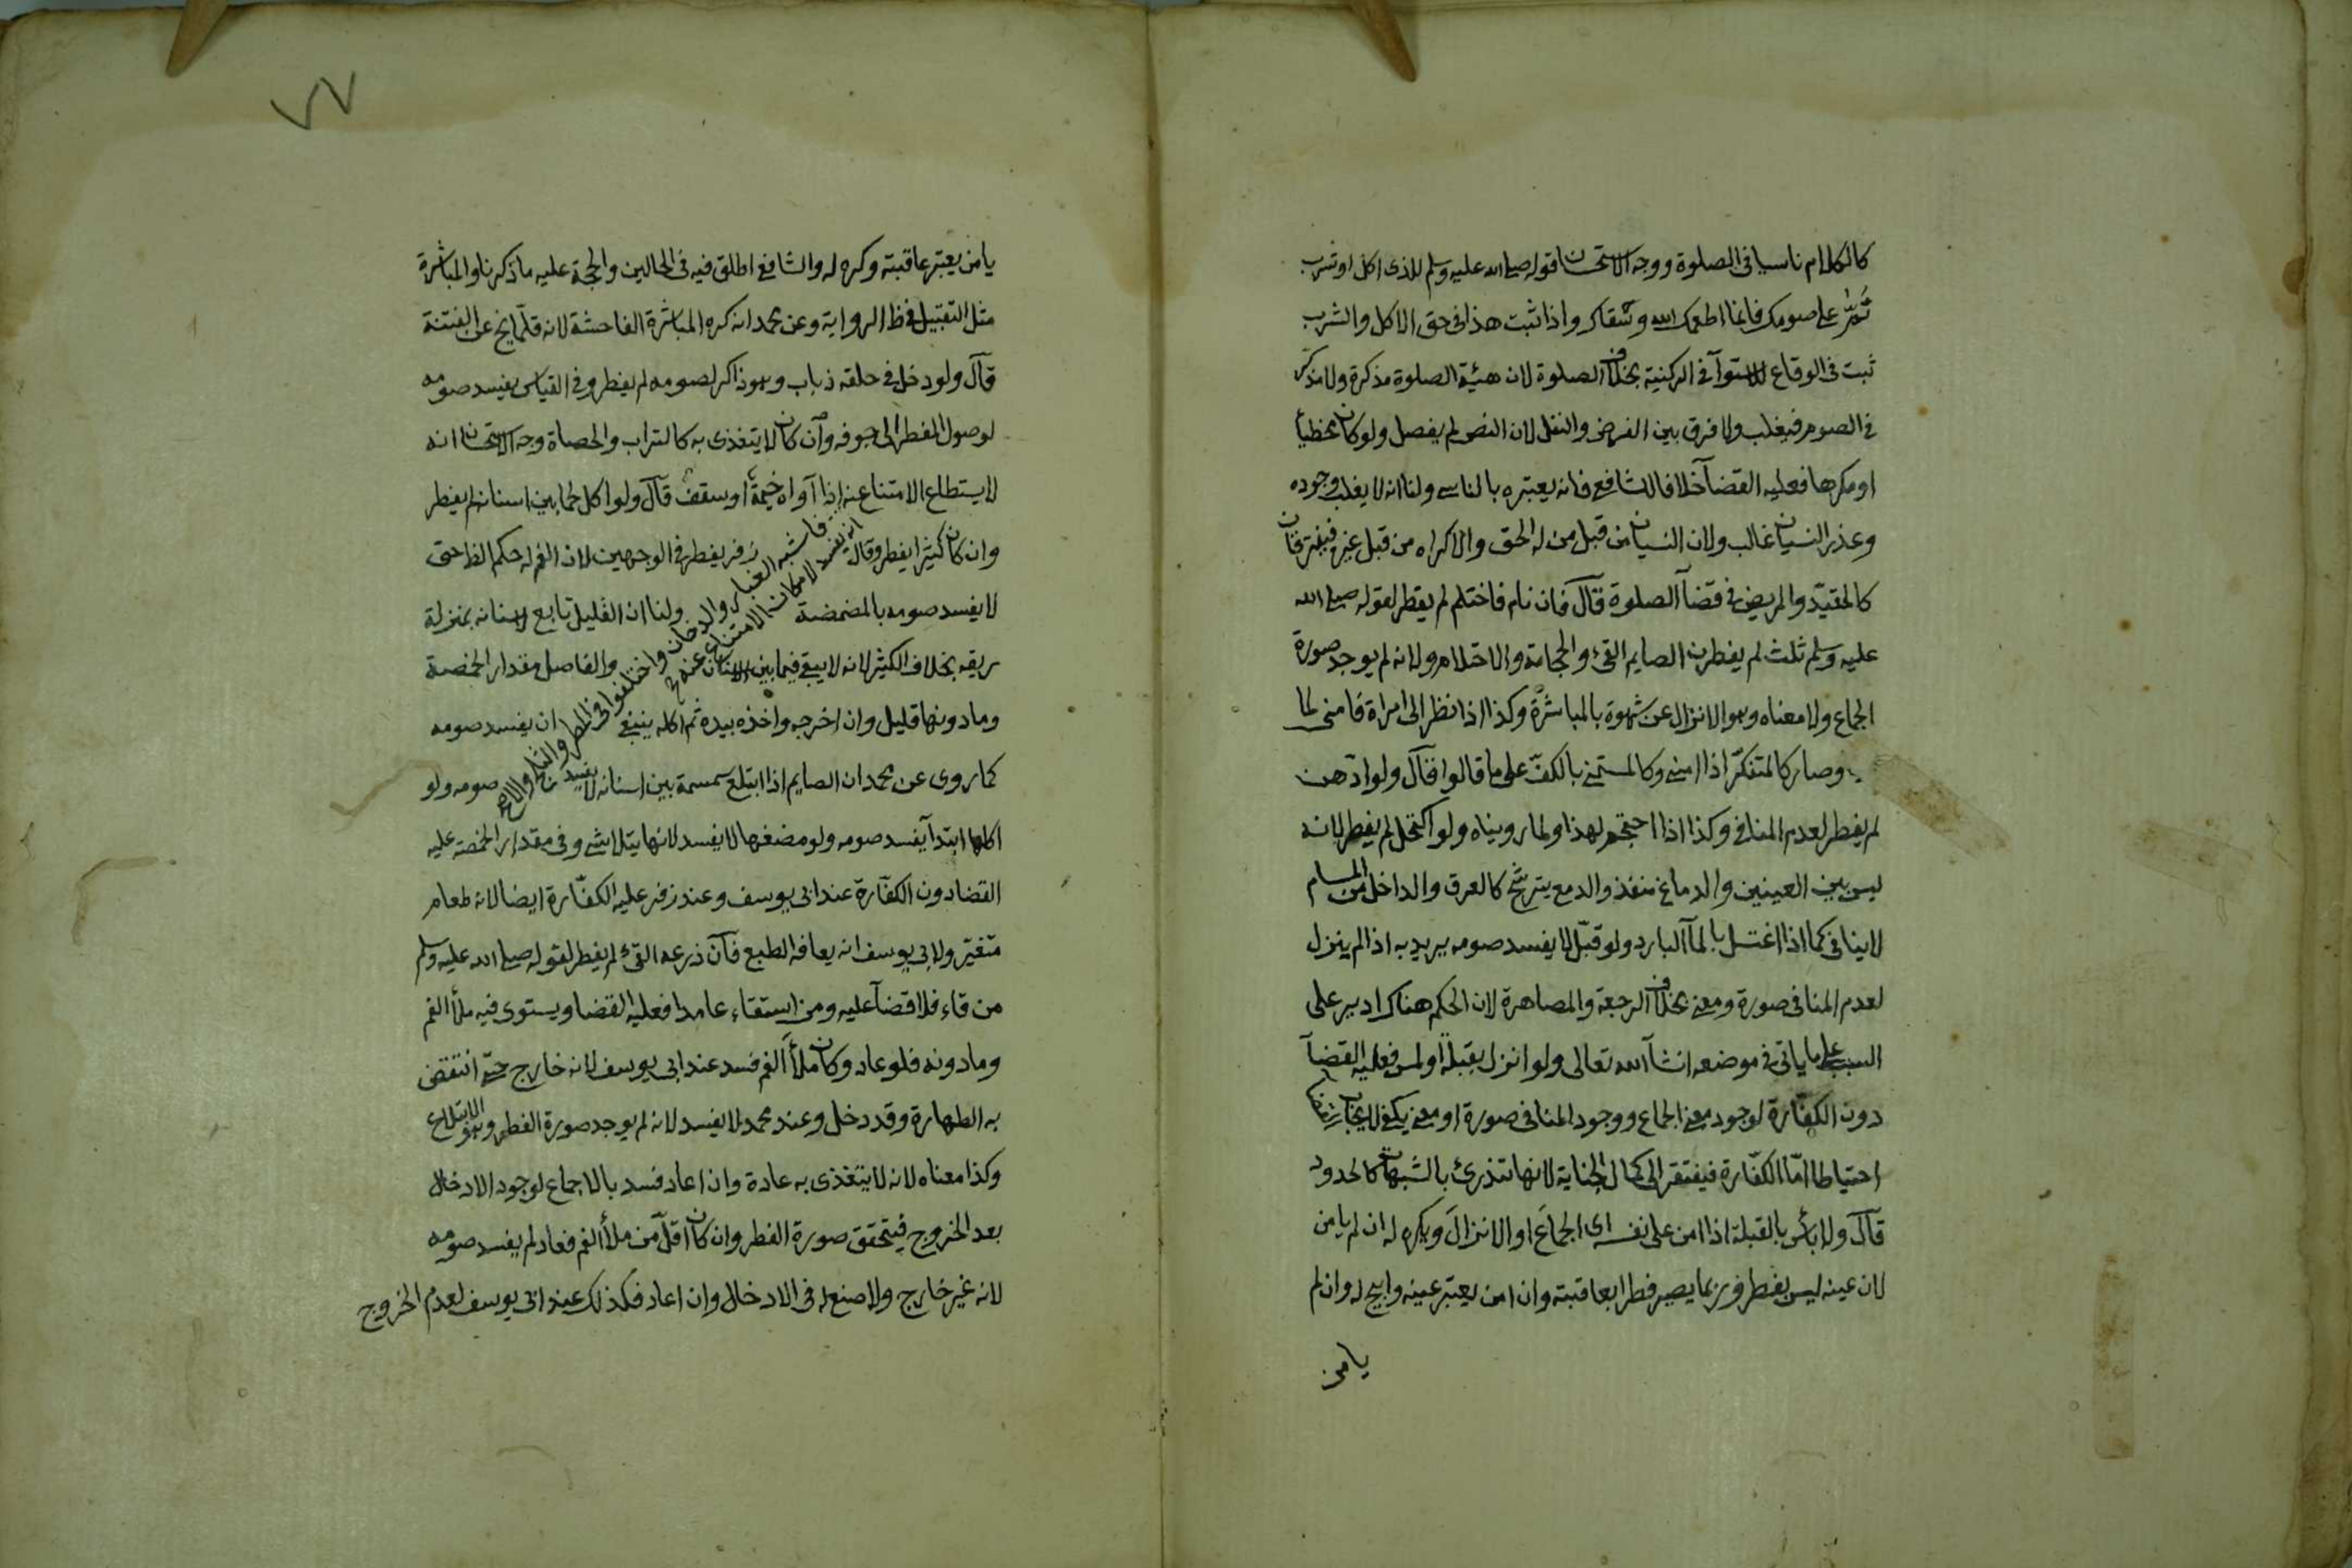 كالكلام ناسيا فى الصلوة ووجه الاستحسان قوله صلى الله عليه وسلم للذى اكل او شرب
تم على صومك فانما اطعمك الله وسقاك واذا ثبت هذا فى حق الاكل والشرب
ثبت فى الوقاع للاستوآ فى الركنية بخلاف الصلوة لان هيئة الصلوة مذكرة ولا مذكر
فى الصوم فيغلب ولا فرق بين الفرض والنفل لان النص لم يفصل ولو كان مخطيأ
او مكرها فعليه القضآ خلافا للشافعى فانه يعتبره بالناسى ولنا انه لا يغلب وجوده
وعذر النسيان غالب ولان النسيان من قبل من له الحق والاكراه من قبل غيره فيفترقان
كالمقيّد والمريض فى قضآ الصلوة قآل فان نام فاحتلم لم يفطر لقوله صلى الله
عليه وسلم ثلث لم يفطرن الصايم القئ والحجامة والاحتلام ولانه لم يوجد صورة
الجماع ولا معناه وهو الانزال عن شهوة بالمباشرة وكذا اذا نظر الى امراة فامنى لما
وصار كالمتفكر اذا امنى وكالمستمنى بالكفّ على ما قالوا قآل ولو ادّهن
لم يفطر لعدم المنافى وكذا اذا احتجم لهذا ولما رويناه ولو اكتحل لم يفطر لانه
ليس بين العينين والدماغ منفذ والدمع يترشح كالعرق والداخل من المسام
لا ينافى كما اذا اغتسل بالمآ البارد ولو قبّل لا يفسد صومه يريد به اذا لم ينزل
لعدم المنافى صورة ومعنى بخلاف الرجعة والمصاهرة لان الحكم هناك ادير على
السبب على ما ياتى فى موضعه انشآ الله تعالى ولو انزل بقبلة او لمس فعليه القضآ
دون الكفّارة لوجود معنى الجماع ووجود المنافى صورة او معنى يكفى لايجاب القضا
احتياطا امّا الكفّارة فيفتقر الى كمال الجناية لانها تندرئ بالشبهات كالحدود
قآل ولا بأس بالقبلة اذا امن على نفسه اى الجماع او الانزال ويكره له ان لم يامن
لان عينه ليس بفطر وربما يصير فطرا بعاقبته وان امن يعتبر عينه وابيح له وان لم
يامن
٧٧
يامن يعتبر عاقبته وكره له والشافعى اطلق فيه فى الحالين والحجة عليه ما ذكرنا والمباشرة
مثل التقبيل فى ظاهر الرواية وعن محمد انه كره المباشرة الفاحشة لانه قلّما يخ عن الفتنة
قآل ولو دخل فى حلقه ذباب وهو ذاكر لصومه لم يفطر وفى القياس يفسد صومه
لوصول المفطر الى جوفه وآن كان لا يتغذى به كالتراب والحصاة وجه الاستحسان انه
لا يستطاع الامتناع عنه فاشبه الغبار والدخان واختلفوا فى المطر والثلج والاصح
انه يفسد لامكان الامتناع عنه
اذا آواه خيمة او سقف قآل ولو اكل لحما بين اسنانه لم يفطر
وان كان كثيرا يفطر وقال زفر يفطر فى الوجهين لان الفم له حكم الظ حتى
لا يفسد صومه بالمضمضة ولنا ان القليل تابع لاسنانه بمنزلة
ريقه بخلاف الكثير لانه لا يبقى فيما بين الاسنان والفاصل مقدار الحمصة
وما دونها قليل وان اخرجه واخذه بيده ثم اكله ينبغى ان يفسد صومه
كما روى عن محمد ان الصايم اذا ابتلع سمسمة بين اسنانه لا يفسد صومه ولو
اكلها ابتدآ يفسد صومه ولو مضغها لا يفسد لانها يتلاشى وفى مقدار الحمصة عليه
القضا دون الكفّارة عند ابى يوسف وعند زفر عليه الكفّارة ايضا لانه طعام
متغير ولابى يوسف انه يعافه الطبع فآن ذرعه القئ لم يفطر لقوله صلى الله عليه وسلم
من قاء فلا قضآ عليه ومن استقاء عامدا فعليه القضا ويستوى فيه ملأ الفم
وما دونه فلو عاد وكان ملأ الفم فسد عند ابى يوسف لانه خارج حتى انتقض
به الطهارة وقد دخل وعند محمد لا يفسد لانه لم يوجد صورة الفطر وهو الابتلاع
وكذا معناه لانه لا يتغذى به عادة وان اعاد فسد بالاجماع لوجود الادخال
بعد الخروج فيتحقق صورة الفطر وان كان اقلّ من ملأ الفم فعاد لم يفسد صومه
لانه غير خارج ولا صنع له فى الادخال وان اعاد فكذلك عند ابى يوسف لعدم الخروج